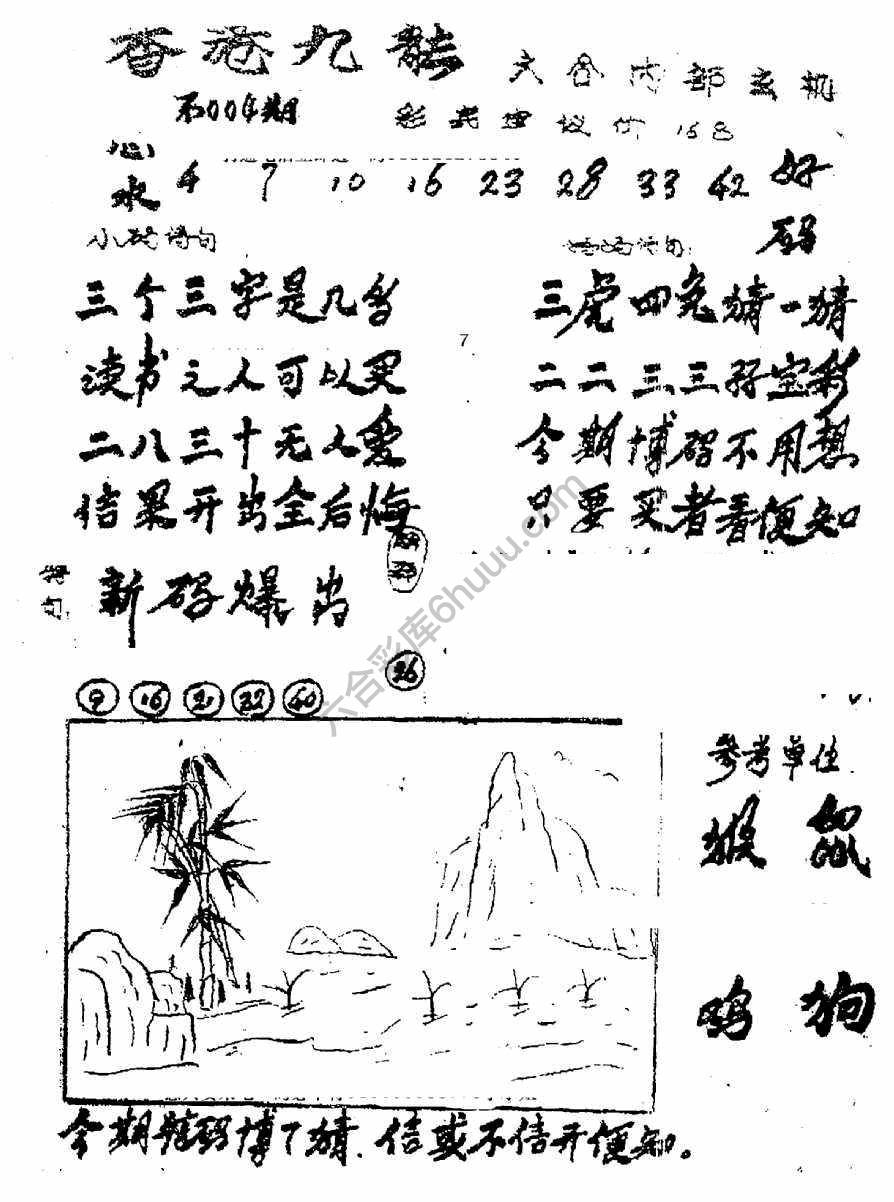 香港九龙 六合内部玄机
不004期 彩民建议价168
心水 4 7 10 16 23 28 33 42 好码
小码诗句
三个三字是几台
读书之人可以买
二八三十无人爱
信果开出全后悔
诗句:
三虎四兔猜一猜
二二三三好宝彩
今期博码不用想
只要买者看便知
7
诗句: 新码爆出
9 16 21 32 40 26
参考单位
猴 鼠
鸡 狗
今期特码博了猜.信或不信开便知。
六合彩库6huuu.com